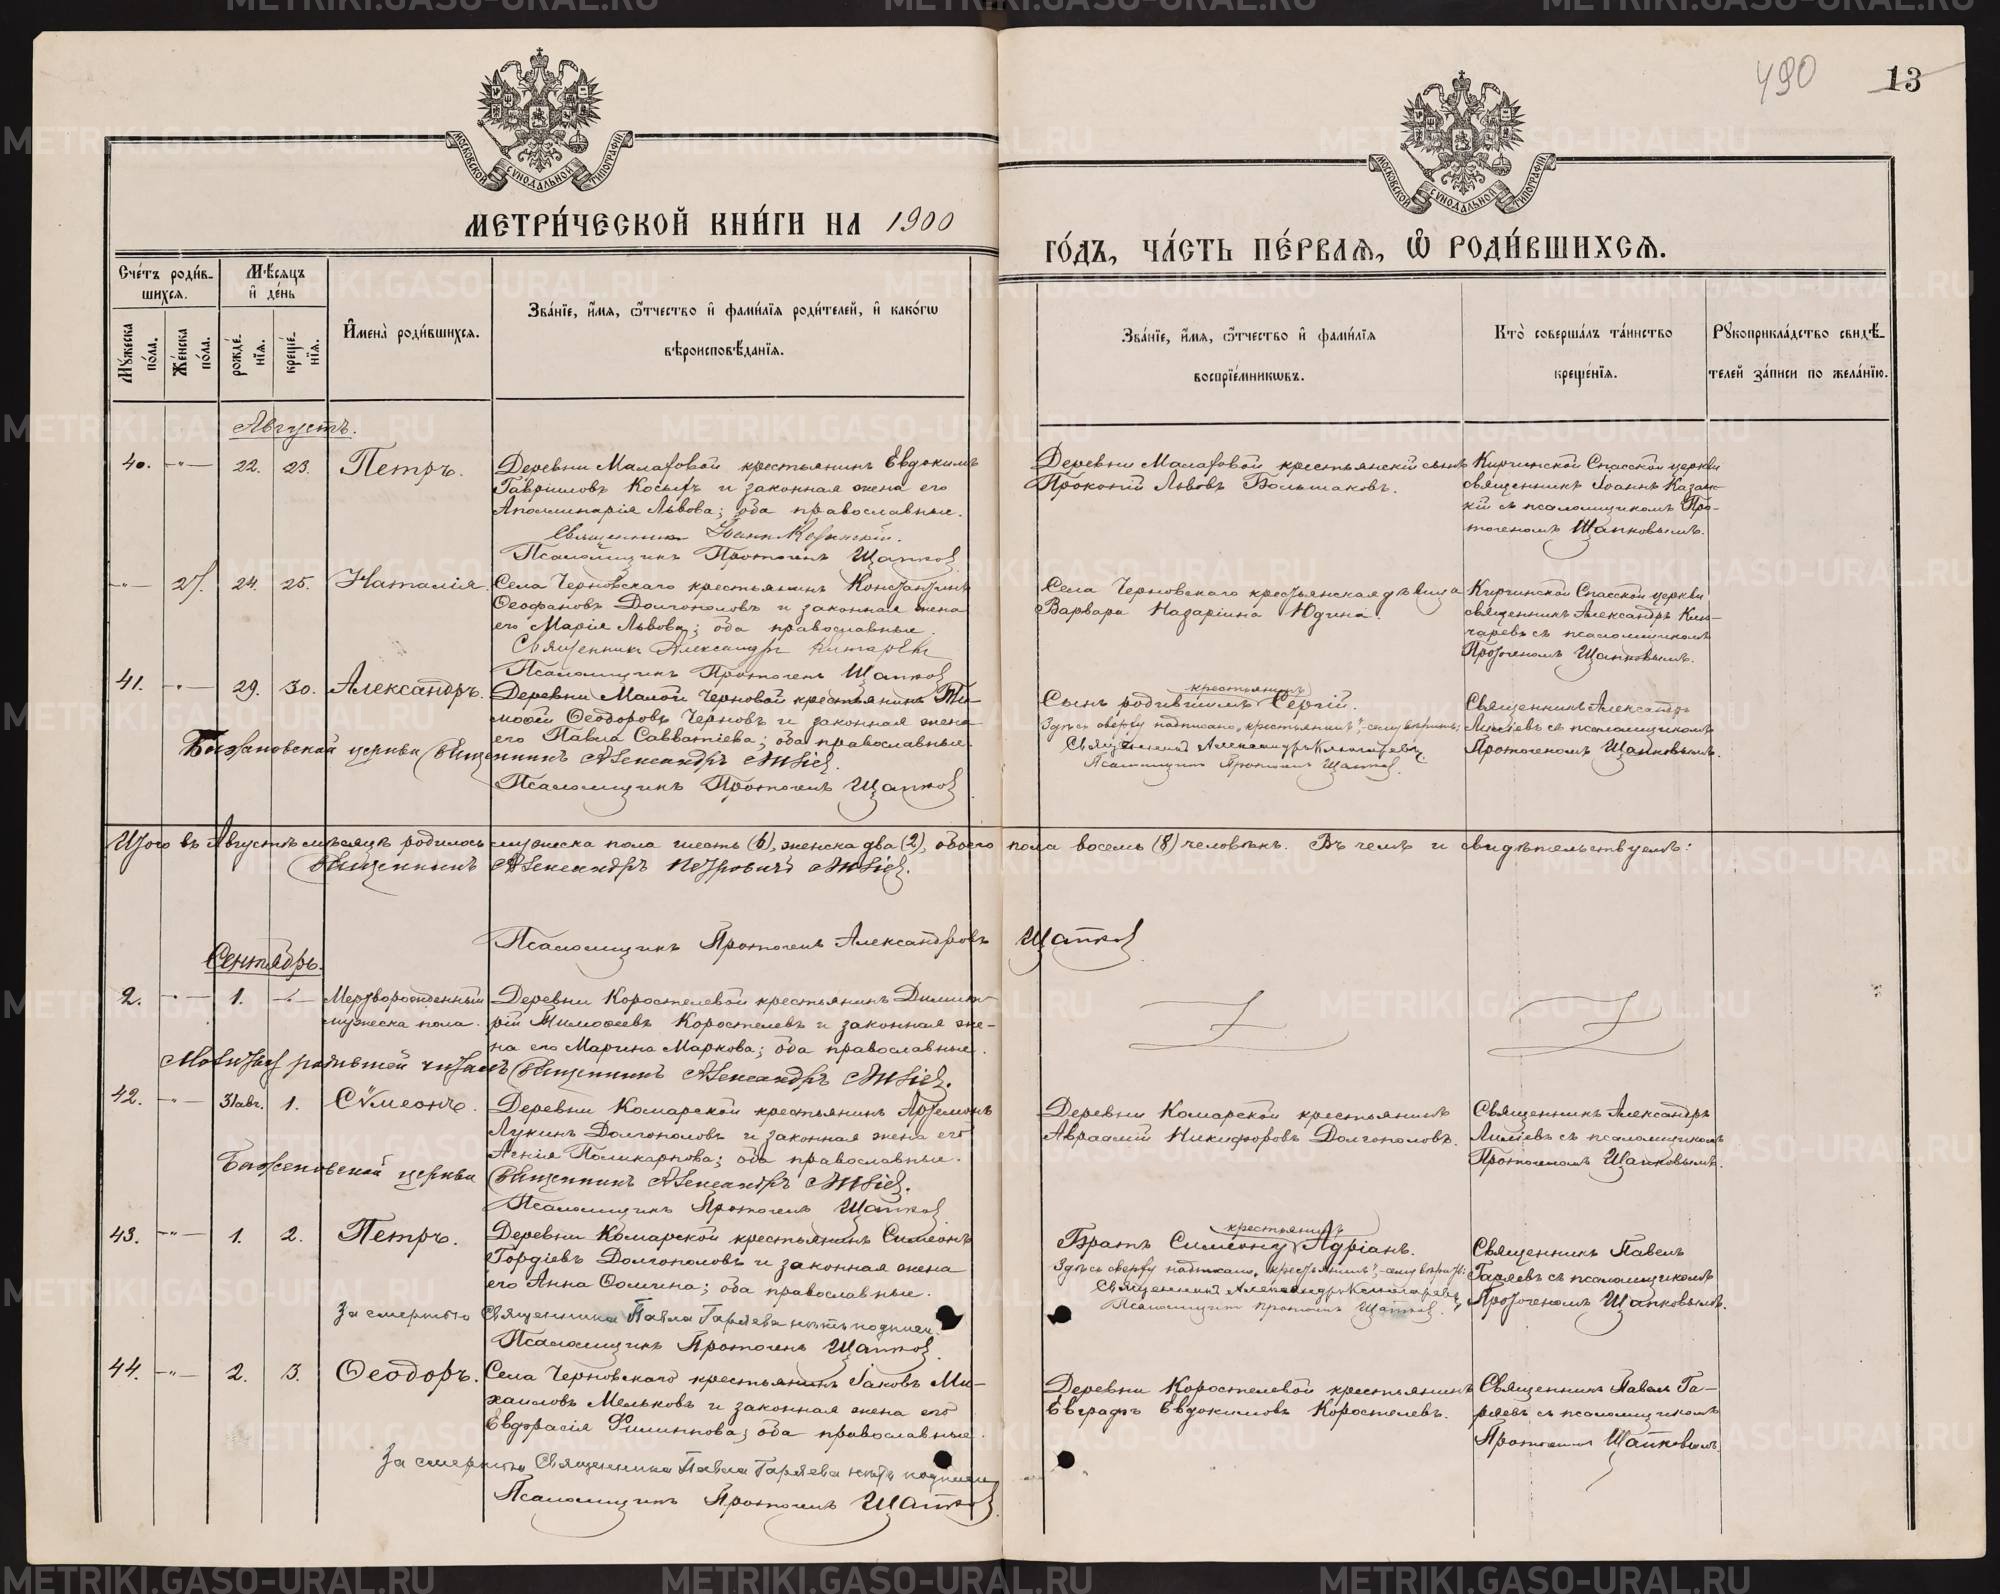 METRIKI.GASO-URAL.RU
490
13
МОСКОВСКОЙ СѴНОДАЛЬНОЙ ТИПОГРАФІИ
МОСКОВСКОЙ СѴНОДАЛЬНОЙ ТИПОГРАФІИ
МЕТРИ́ЧЕСКОЙ КНИ́ГИ НА 1900
ГО́ДЪ, ЧА́СТЬ ПЕ́РВАѦ, Ѡ҆ РОДИ́ВШИХСѦ.
Сче́тъ роди́в-
шихсѧ.
Мꙋ́жеска по́ла.
Же́нска по́ла.
Мѣ́сѧцъ и҆ де́нь
рожде́-нїѧ.
креще́-нїѧ.
И҆мена̀ роди́вшихсѧ.
Зва́нїе, и҆́мѧ, ѻ҆́тчество и҆ фами́лїѧ роди́телей, и҆ како́гѡ
вѣроисповѣ́данїѧ.
Зва́нїе, и҆́мѧ, ѻ҆́тчество и҆ фами́лїѧ
воспрїе́мникѡвъ.
Кто̀ соверша́лъ та́инство
креще́нїѧ.
Рꙋкоприкла́дство свидѣ́-
телей за́писи по жела́нїю.
Августъ.
40. -"- 22. 23. Петръ.
Деревни Малаховой крестьянинъ Евдокимъ
Гаврииловъ Косыхъ и законная жена его
Аполлинарія Львова; оба православные.
Священникъ Іоаннъ Казанскій.
Псаломщикъ Протогенъ Щапков
Деревни Малаховой крестьянскій сынъ
Прокопій Львовъ Большаковъ.
Киргинской Спасской церкви
священникъ Іоаннъ Казан-
кій съ псаломщикомъ Про-
тогеномъ Щапковымъ.
-"- 27. 24. 25. Наталія.
Села Черновскаго крестьянинъ Константинъ
Ѳеофановъ Долгополовъ и законная жена
его Марія Львова; оба православные
Священникъ Александръ
Псаломщикъ Протогенъ Щапков
Села Черновскаго крестьянская дѣвица
Варвара Назаріина Юдина.
Киргинской Спасской церкви
священникъ Александръ Кип-
чаревъ съ псаломщикомъ
Протогеномъ Щапковымъ.
41. -"- 29. 30. Александръ.
Деревни Малой Черновой крестьянинъ Ти-
моѳей Ѳеодоровъ Черновъ и законная жена
его Павла Савватіева; оба православные.
Баженовской церкви Священникъ Александръ
Псаломщикъ Протогенъ Щапков
крестьянинъ
Сынъ родившимъ Сергій.
Здѣсь сверху надписано „крестьянинъ",
Священникъ Александръ
Псаломщикъ Протогенъ Щапков.
Священникъ Александръ
съ псаломщикомъ
Протогеномъ Щапковымъ.
Итого въ Августѣ мѣсяцѣ родилось мужеска пола шесть (6), женска два (2), обоего пола восемь (8) человѣкъ. Въ чемъ и свидѣтельствуемъ:
Священникъ Александръ Петровичъ
Псаломщикъ Протогенъ Александровъ Щапков
Сентябрь.
2. -"- 1. -"- Мертворожденный
мужеска пола.
Деревни Коростелевой крестьянинъ Димит-
рій Тимоѳеевъ Коростелевъ и законная же-
на его Марина Маркова; оба православные.
Молитву родившей читалъ Священникъ Александръ
42. -"- 31 авг. 1. Сѵмеонъ.
Деревни Комарской крестьянинъ Артемонъ
Лукинъ Долгополовъ и законная жена его
Ксенія Поликарпова; оба православные.
Баженовской церкви Священникъ Александръ
Псаломщикъ Протогенъ Щапков
Деревни Комарской крестьянинъ
Авраамій Никифоровъ Долгополовъ.
Священникъ Александръ
съ псаломщикомъ
Протогеномъ Щапковымъ.
43. -"- 1. 2. Петръ.
Деревни Комарской крестьянинъ Симеонъ
Гордіевъ Долгополовъ и законная жена
его Анна Ѳомина; оба православные.
За смертью Священника Павла Гаряева нѣтъ подписи.
Псаломщикъ Протогенъ Щапков
крестьянинъ
Братъ Симеону Адріанъ.
Здѣсь сверху надписано „крестьянинъ",
Священникъ Александръ
Псаломщикъ Протогенъ Щапков.
Священникъ Павелъ
Гаряевъ съ псаломщикомъ
Протогеномъ Щапковымъ.
44. -"- 2. 3. Ѳеодоръ.
Села Черновскаго крестьянинъ Іаковъ Ми-
хаиловъ Мельковъ и законная жена его
Евдоксія Филиппова; оба православные.
За смертью Священника Павла Гаряева нѣтъ подписи
Псаломщикъ Протогенъ Щапков
Деревни Коростелевой крестьянинъ
Евграфъ Евдокимовъ Коростелевъ.
Священникъ Павелъ Га-
ряевъ съ псаломщикомъ
Протогеномъ Щапковымъ